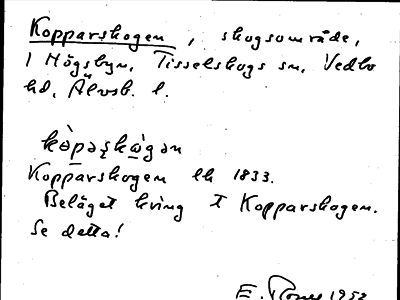 Kopparskogen, skogsområde,
i Högsbyn, Tisselskogs sn, Vedbo
hd, Älvsb. l.
kòpaʂkàgan
Kopparskogen lk 1833.
Beläget kring T Kopparskogen.
Se detta!
E. 1952